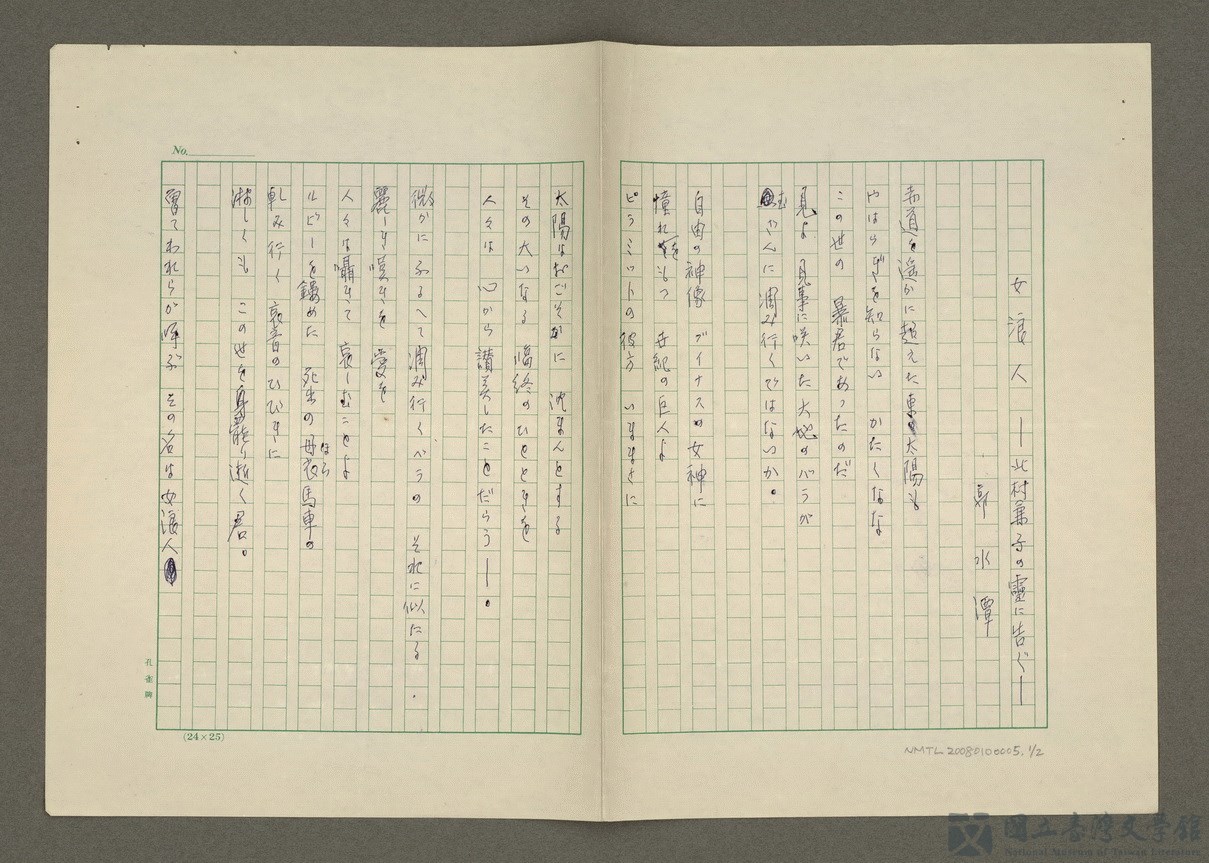 女浪人 ―北村兼子の靈に告ぐ―
郭水潭
赤道を遥かに超えた東の太陽も
やはらぎを知らない かたくなな
この世の 暴君であったのだ
見よ 見事に咲いた大地のバラが
むざんに凋み行くではないか。
自由の神像 ヴイナスの女神に
憧れをもつ 世紀の巨人よ
ピラミットの彼方 いままさに
太陽はおごそかに 沈まんとする
その大いなる 臨終のひとときを
人々は 心から讃美したことだらう―。
微かに ふるへて凋み行くバラの それに似たる
麗しき嘆きを 愛を
人々は囁きて 哀しむことよ
ルビーを鏤めた 死出の母衣馬車の
ほろ
軋み行く 跫音のひびきに
淋しくも この世を身罷り逝く君。
曾てわれらが呼ぶ その名は女浪人
No.
(24×25)
孔雀牌
NMTL20080100005.1/2
國立臺灣文學館
National Museum of Taiwan Literature